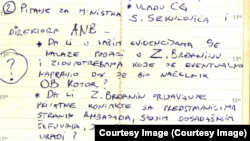 ② PITANJE ZA MINISTRA
* VLADU CG
S. SEKULOVIĆA i
DIREKTORA ANB-
* DA LI U VAŠIM EVIDENCIJAMA SE
NALAZE PODACI O Z. BRĐANINU
?
I ZLOUPOTREBAMA KOJE JE EVENTUALNO
NAPRAVIO DOK JE BIO NAČELNIK
OB KOTOR?
* DA LI Z. BRĐANIN PRIJAVLJUJE
PRIVATNE KONTAKTE SA PREDSTAVNICIMA
STRANIH AMBASADA, SVOJIM DOSADAŠNJIM
ŠEFOVIMA,
URADI?
Courtesy Image (Courtesy Image)